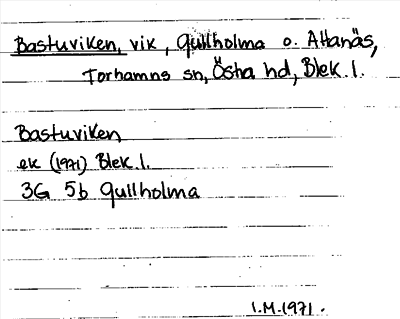 Bastuviken, vik, Gullholma o. Attanäs,
Torhamns sn, Östra hd, Blek. l.
Bastuviken
ek (1971) Blek. l.
3G 5b Gullholma
I.M. 1971.